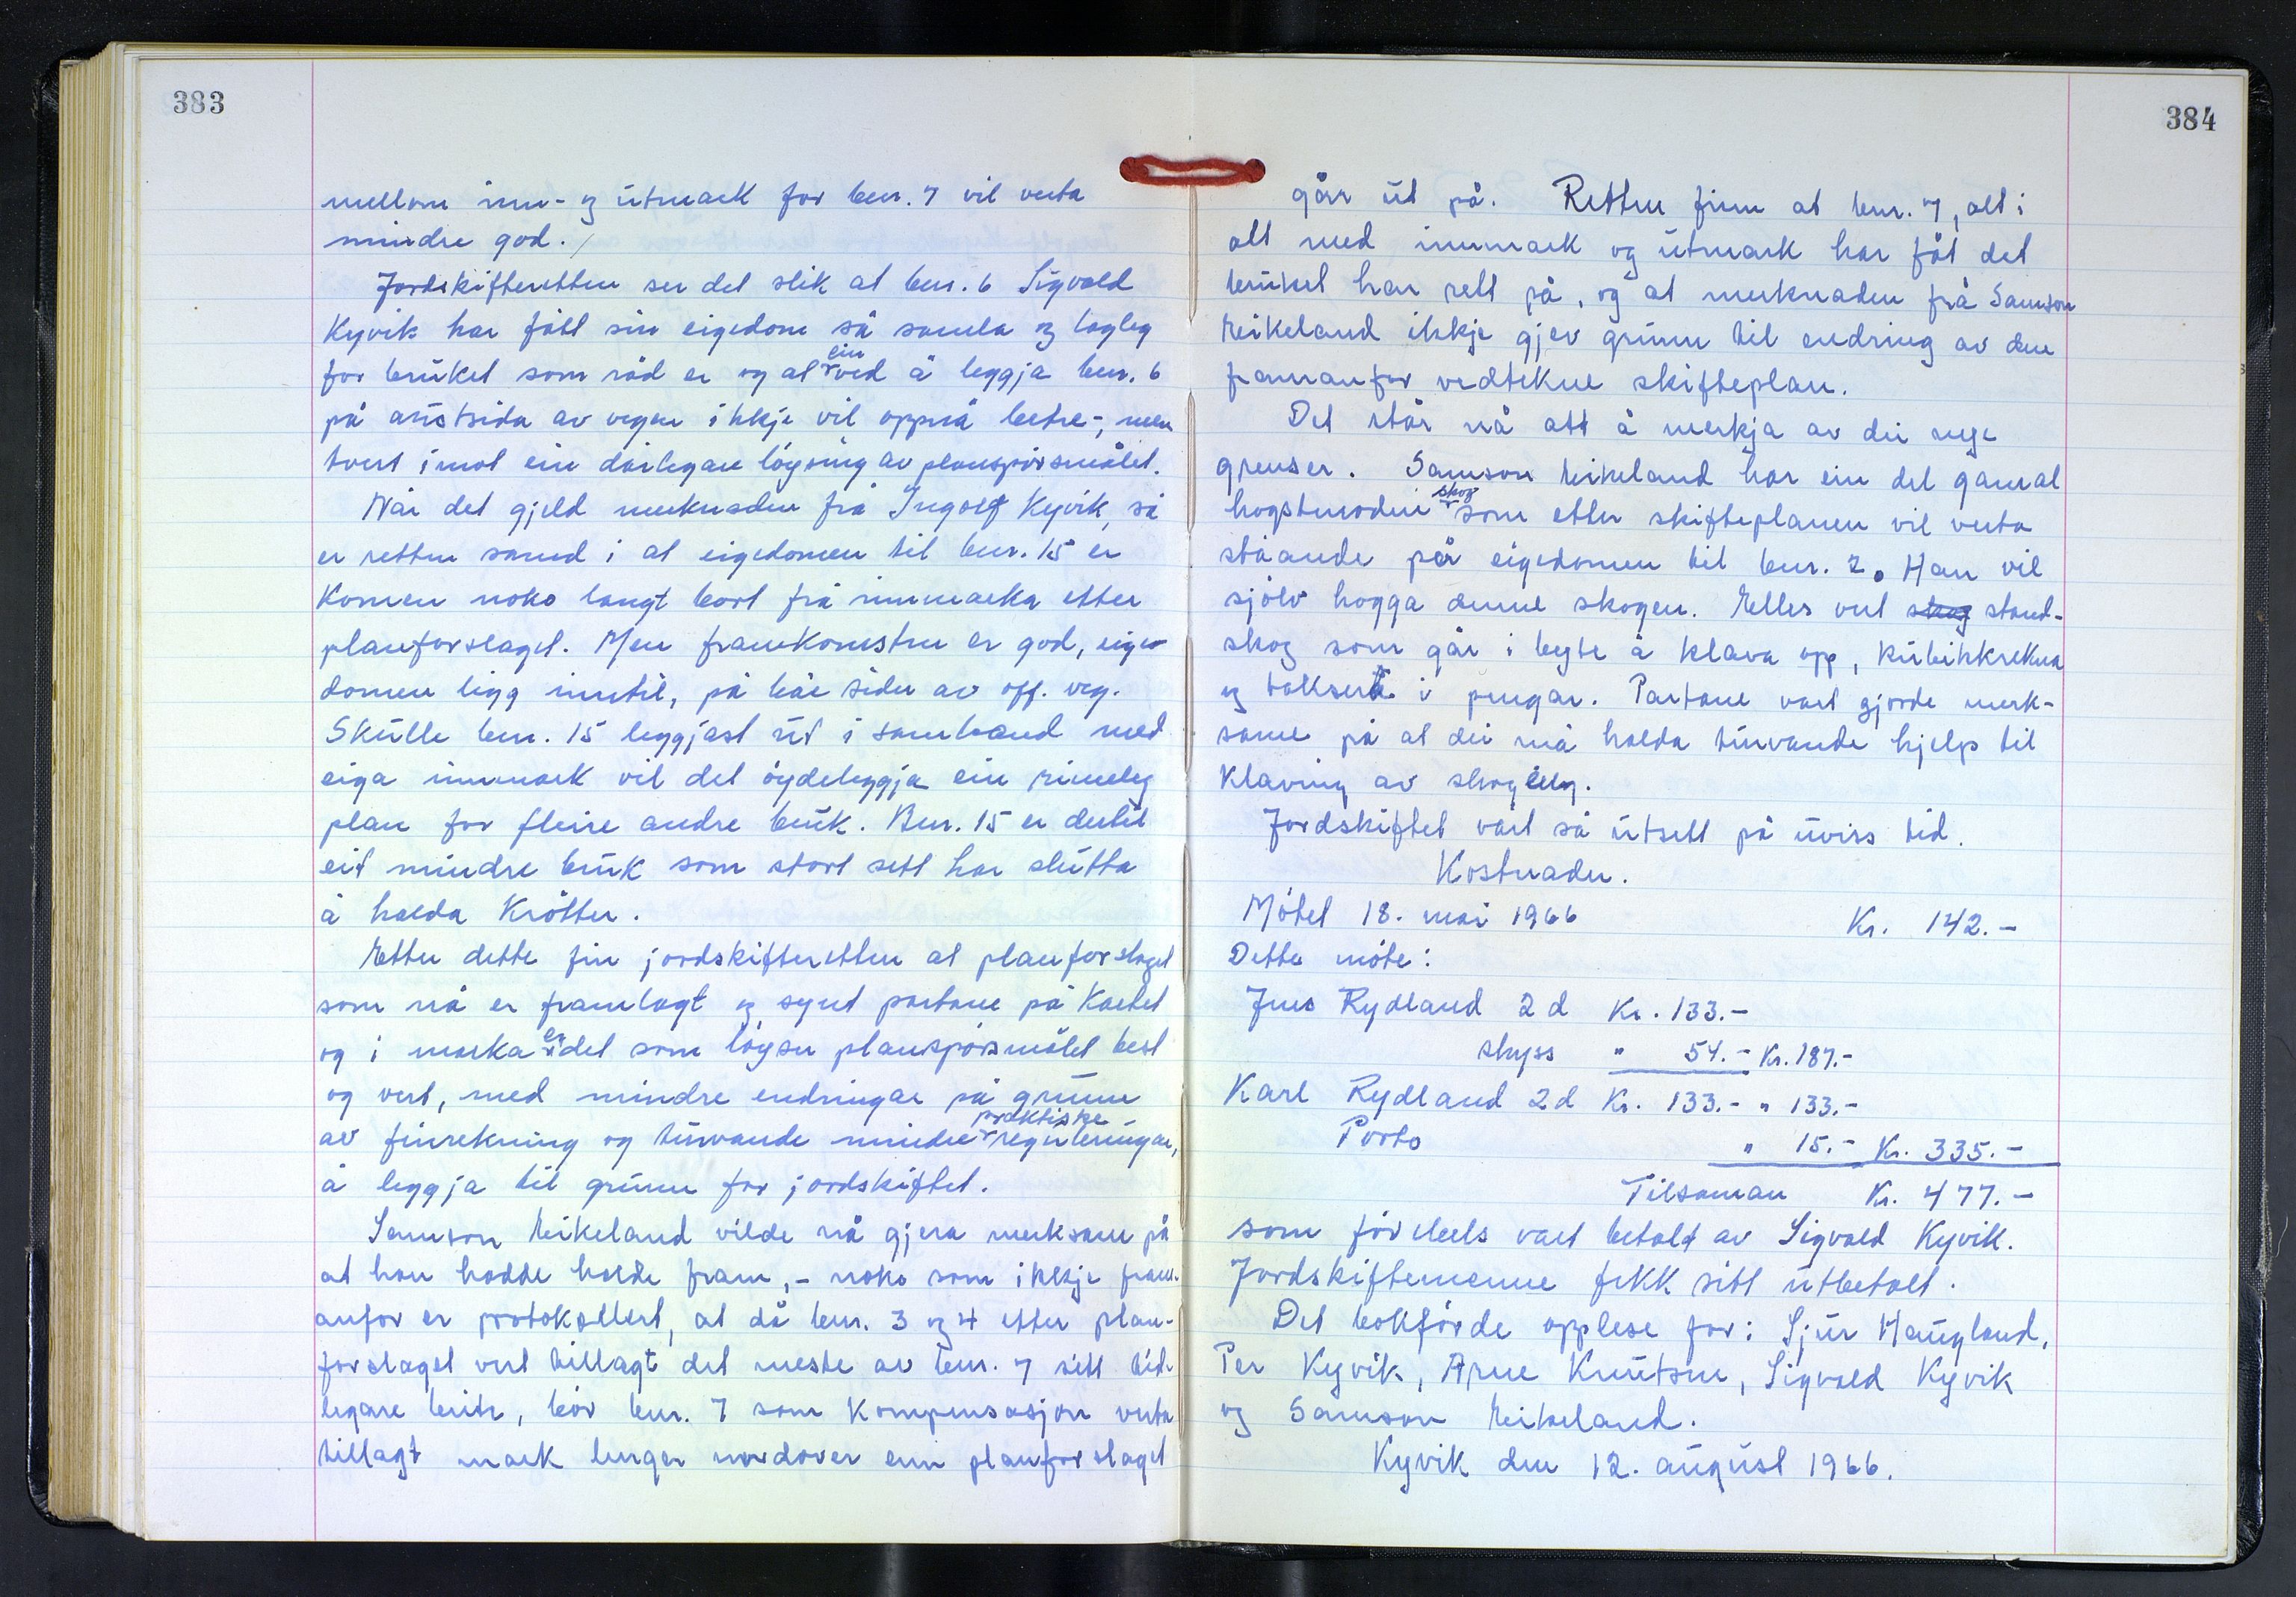 383
mellom inn- og utmark for bnr. 7 vil verta
mindre god.
Jordskifteretten ser det slik at bnr. 6 Sigvald
Kyvik har fått sin eigedom så samla og lagleg
for bruket som råd er og at ein ved å leggja bnr. 6
på austsida av vegen ikkje vil oppnå betre-, men
tvert imot ein dårlegare løysing av planspørsmålet.
Når det gjeld merknaden frå Ingolf Kyvik, så
er retten samd i at eigedomen til bnr. 15 er
komen noko langt bort frå innmarka etter
planforslaget. Men framkomsten er god, eige-
domen ligg inntil, på båe sider av off. veg.
Skulle bnr. 15 leggjast ut i samband med
eiga innmark vil det øydeleggja ein rimeleg
plan for fleire andre bruk. Bnr. 15 er dertil
eit mindre bruk som stort sett har slutta
å halda krøtter.
Etter dette finn jordskifteretten at planforslaget
som nå er framlagt og synt partane på kartet
og i marka er det som løyser planspørsmålet best
og vert, med mindre endringar på grunn
av finrekning og turvande mindre praktiske reguleringar,
å leggja til grunn for jordskiftet.
Samson Eikeland vilde nå gjera merksam på
at han hadde halde fram, - noko som ikkje fram-
anfor er protokollert, at då bnr. 3 og 4 etter plan-
forslaget vert tillagt det meste av bnr. 7 sitt tid-
legare beite, bør bnr. 7 som kompensasjon verta
tillagt mark lenger nordover enn planforslaget
384
går ut på. Retten finn at bnr. 7, alt i
alt med innmark og utmark har fåt det
bruket har rett på, og at merknaden frå Samson
Eikeland ikkje gjev grunn til endring av den
framanfor vedtekne skifteplan.
Det står nå att å merkja av dei nye
grenser. Samson Eikeland har ein del gamal
hogstmoden skog som etter skifteplanen vil verta
ståande på eigedomen til bnr. 2. Han vil
sjølv hogga denne skogen. Elles vert skog stand-
skog som går i byte å klava opp, kubikkrekna
og taksera i pengar. Partane vart gjorde merk-
same på at dei må halda turvande hjelp til
klaving av skogen.
Jordskiftet vart så utsett på uviss tid.
Kostnader.
Møtet 18. mai 1966 Kr. 142.-
Dette møte:
Jens Rydland 2 d Kr. 133.-
skyss " 54.- Kr. 187.-
Karl Rydland 2 d Kr. 133.- " 133.-
Porto " 15.- Kr. 335.-
Tilsaman Kr. 477.-
som førebels vart betalt av Sigvald Kyvik.
Jordskiftemenne fekk sitt utbetalt.
Det bokførde opplese for: Sjur Haugland,
Per Kyvik, Arne Knutsen, Sigvald Kyvik
og Samson Eikeland.
Kyvik den 12. august 1966.